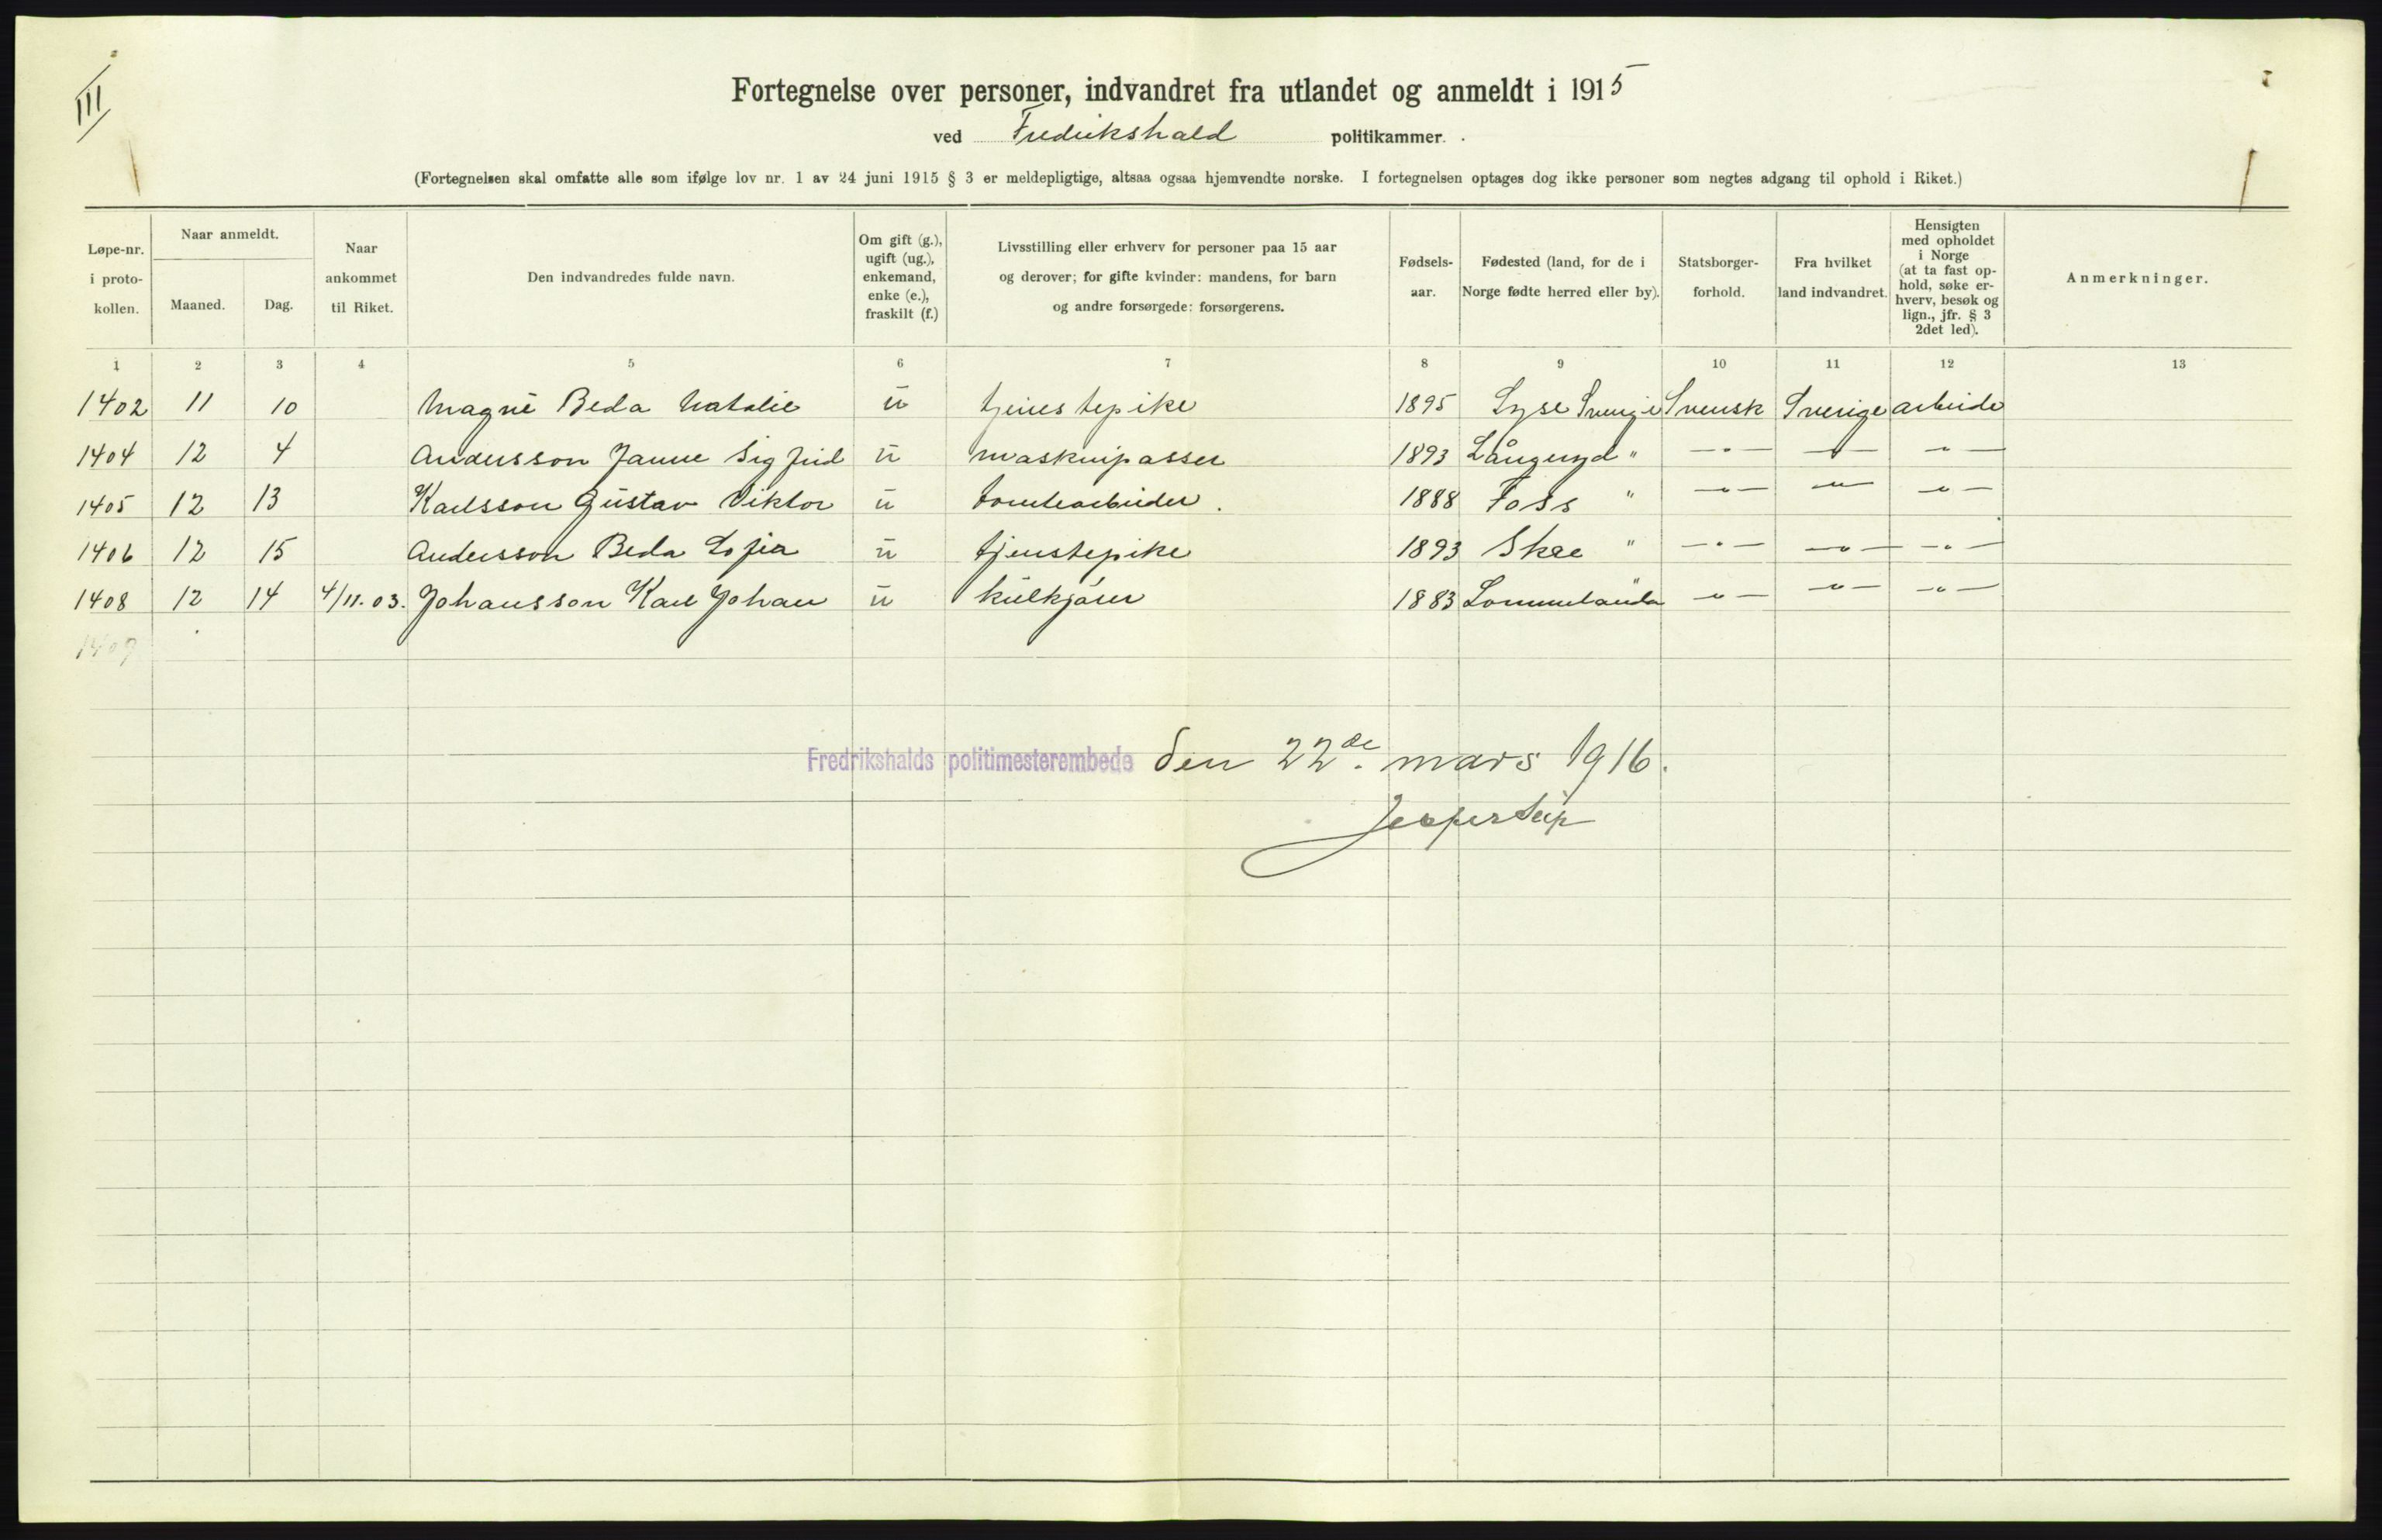 III
Fortegnelse over personer, indvandret fra utlandet og anmeldt i 1915
ved Fredrikshald politikammer.
(Fortegnelsen skal omfatte alle som ifølge lov nr. 1 av 24 juni 1915 § 3 er meldepligtige, altsaa ogsaa hjemvendte norske. I fortegnelsen optages dog ikke personer som negtes adgang til ophold i Riket.)
Løpe-nr. i proto- kollen.
Naar anmeldt.
Maaned.
Dag.
Naar ankommet til Riket.
Den indvandredes fulde navn.
Om gift (g.), ugift (ug.), enkemand, enke (e.), fraskilt (f.)
Livsstilling eller erhverv for personer paa 15 aar og derover; for gifte kvinder: mandens, for barn og andre forsørgede: forsørgerens.
Fødsels- aar.
Fødested (land, for de i Norge fødte herred eller by).
Statsborger- forhold.
Fra hvilket land indvandret.
Hensigten med opholdet i Norge (at ta fast op- hold, søke er- hverv, besøk og lign., jfr. § 3 2det led).
Anmerkninger.
1 2 3 4 5 6 7 8 9 10 11 12 13
1402 11 10 Magnè Beda Natalie u tjenestepike 1895 Lyse Sverige Svensk Sverige arbeide
1404 12 4 Andersson Janne Sigfrid u maskinpasser 1893 " —"— —"— —"—
1405 12 13 Karlsson Gustav Viktor u tomtearbeider. 1888 Foss " —"— —"— —"—
1406 12 15 Andersson Beda Sofia u tjenstepike 1893 Skee " —"— —"— —"—
1408 12 14 4/11.03. Johansson Karl Johan u kulkjører 1883 Lommelanda " —"— —"— —"—
1409
Fredrikshalds politimesterembede den 22de mars 1916.
Jesper Seip